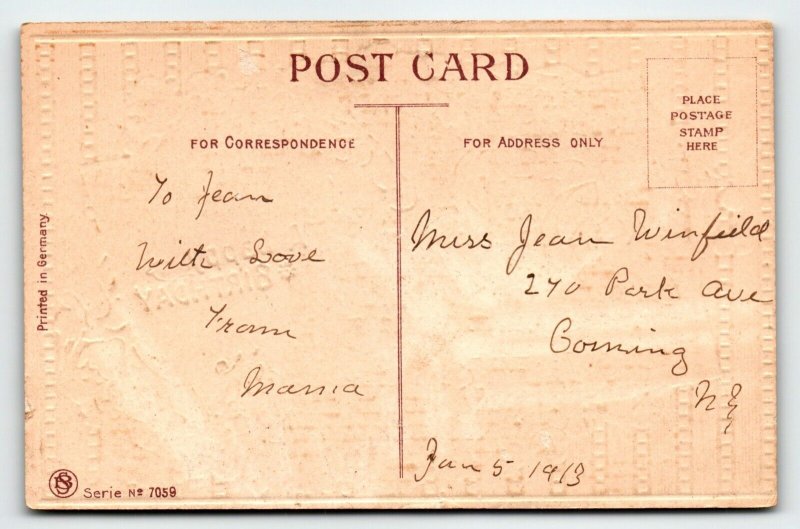 POST CARD
PLACE
POSTAGE
STAMP
HERE
FOR CORRESPONDENCE
FOR ADDRESS ONLY
To Jean
With Love
From
Mama
Miss Jean Winfield
270 Park Ave
Corning
N Y
Jan 5 1913
Printed in Germany
Serie No 7059